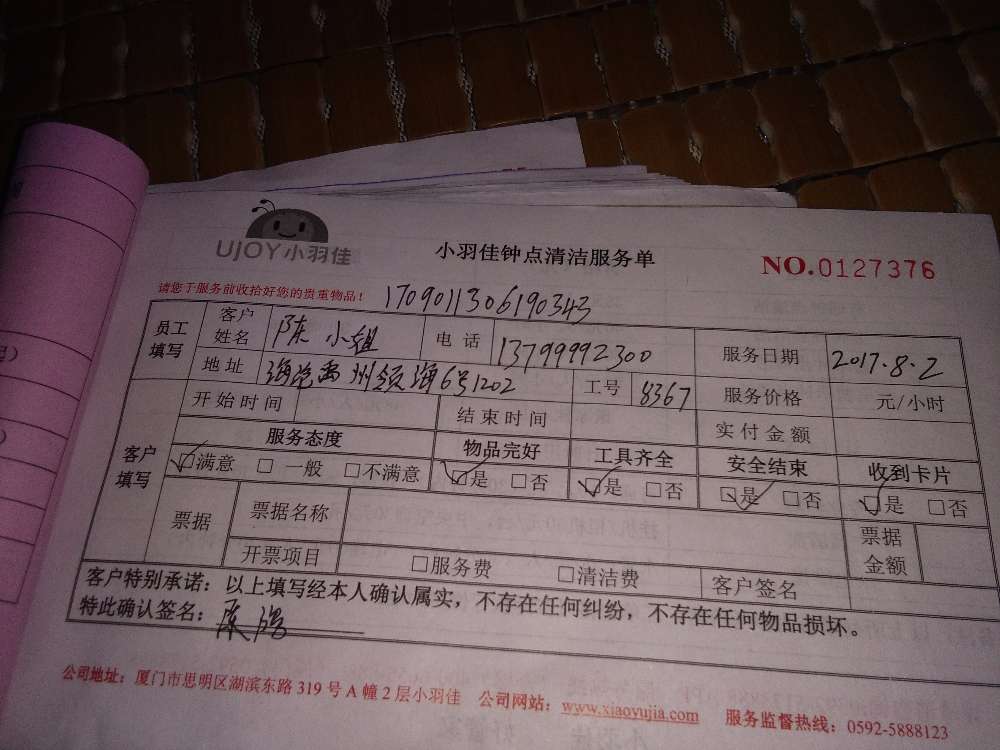 UJOY小羽佳
小羽佳钟点清洁服务单
NO.0127376
请您于服务前收拾好您的贵重物品！ 170901130619034​3
员工填写 客户姓名 陈小姐 电话 13799992300 服务日期 2017.8.2
地址 海沧禹州领海6号1202 工号 8367 服务价格 元/小时
客户填写 开始时间 结束时间 实付金额
服务态度 物品完好 工具齐全 安全结束 收到卡片
☑满意 □一般 □不满意 ☑是 □否 ☑是 □否 ☑是 □否 ☑是 □否
票据 票据名称 票据金额
开票项目 □服务费 □清洁费 客户签名
客户特别承诺：以上填写经本人确认属实，不存在任何纠纷，不存在任何物品损坏。
特此确认签名：
公司地址：厦门市思明区湖滨东路319号A幢2层小羽佳 公司网站：www.xiaoyujia.com 服务监督热线：0592-5888123